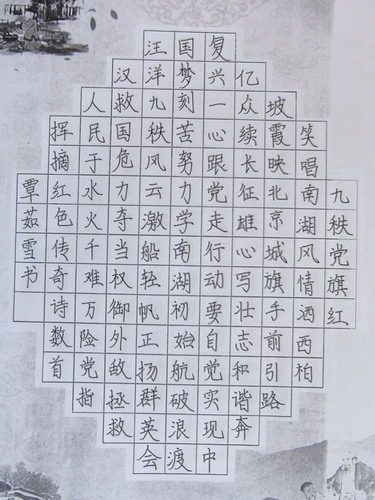 九秩党旗红
笑唱南湖风情洒西柏
坡霞映北京城旗手前引路
亿众续长征雄心写壮志和谐奔
复兴一心跟党走行动要自觉实现中
国梦刻苦努力学南湖初始航破浪渡
汪洋九秩风云激船轻帆正扬群英会
汉救国危力夺当权御外敌拯救
人民于水火千难万险党指
挥摘红色传奇诗数首
覃茹雪书